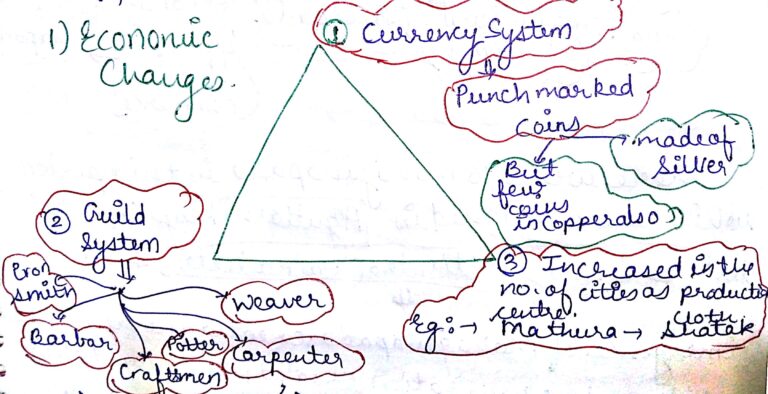 1) Economic
Changes.
① Currency System
Punch marked
coins
made of
Silver
But
few
coins
in Copper also
② Guild
System
Iron
smith
Barbar
Craftsmen
Potter
Carpenter
Weaver
③ Increased in the
no. of cities as producti
centre.
Eg:→ Mathura → cloth
Shatak